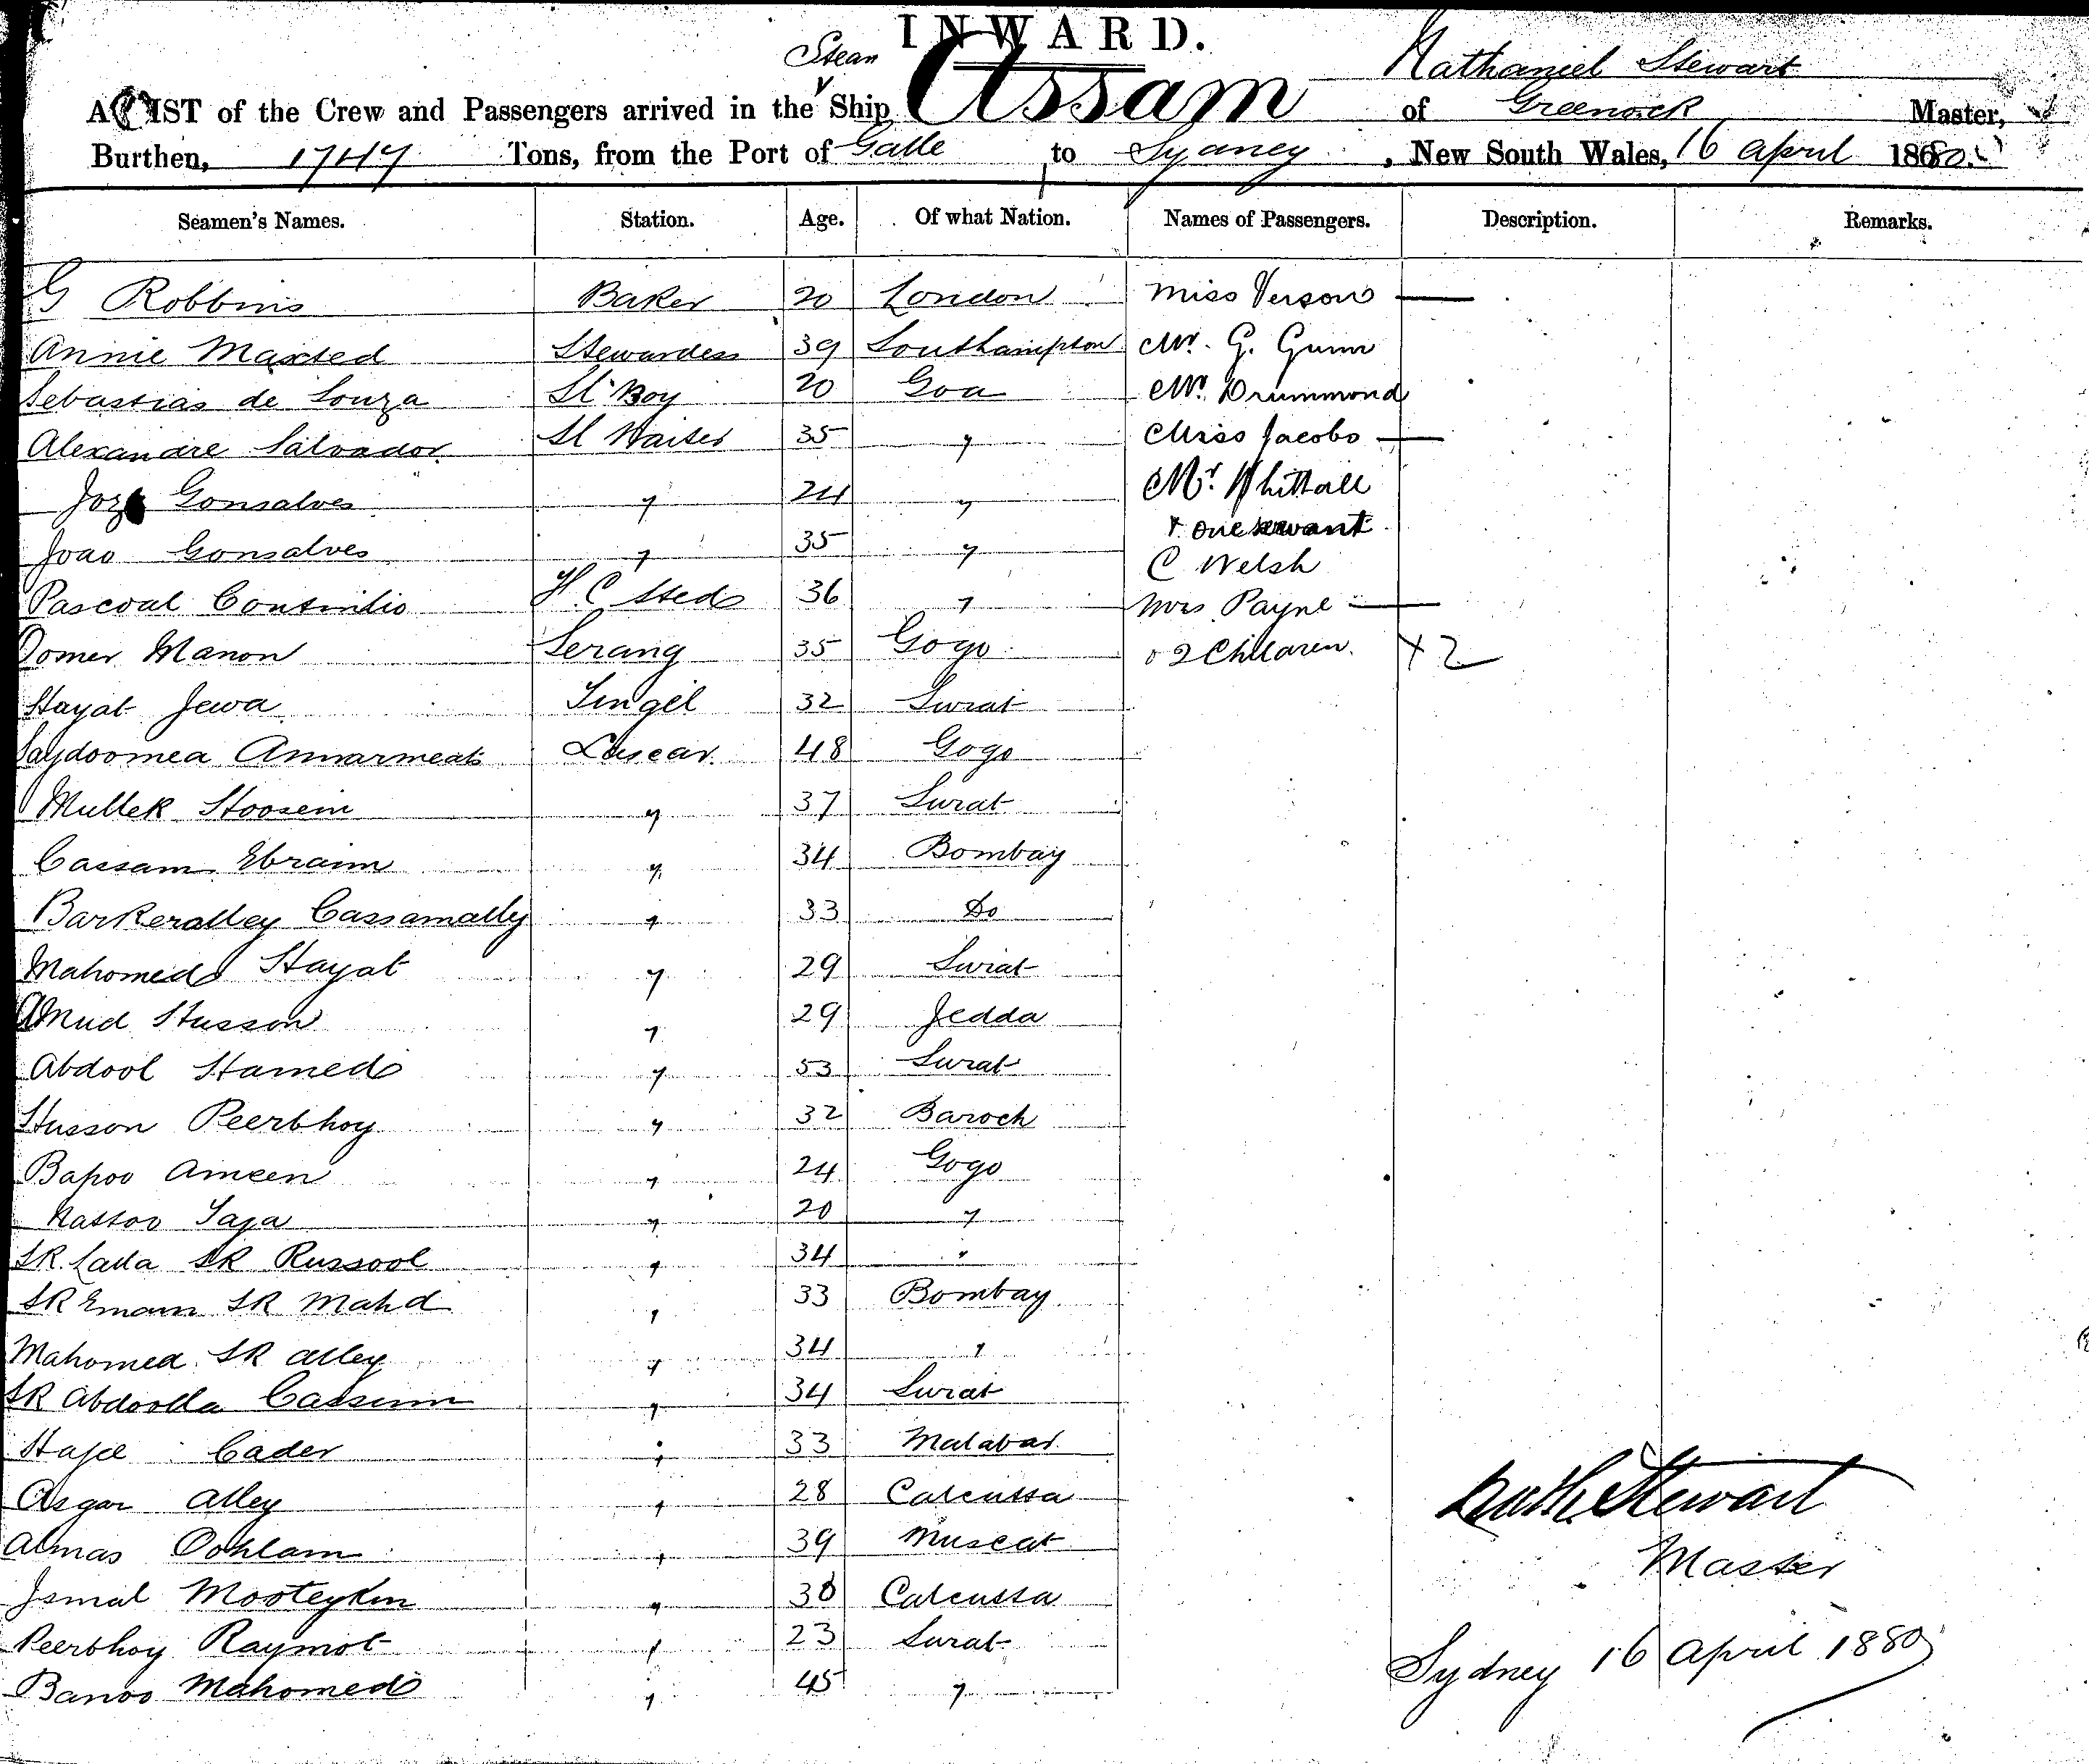 INWARD.
Steam Nathaniel Stewart
A LIST of the Crew and Passengers arrived in the Ship Assam of Greenock Master,
Burthen, 1747 Tons, from the Port of Galle to Sydney, New South Wales, 16 April 1880.
Seamen's Names. Station. Age. Of what Nation. Names of Passengers. Description. Remarks.
G Robbins Baker 20 London Miss Verson —
Annie Maxted Stewardess 39 Southampton Mr. G. Gunn
Sebastias de Souza St Boy 20 Goa Mr. Drummond
Alexandre Salvador Sl Waiter 35 " Miss Jacobs —
Joze Gonsalves " 24 " Mr. Whittall
& one servant
Joao Gonsalves " 35 " C Welsh
Pascoal Coutindio H. C Sted 36 " Mrs Payne —
Oomer Manon Serang 35 Gogo & 2 Children. + 2
Hayat Jewa Tingel 32 Surat
Saydoomea Amarmeah Lascar 48 Gogo
Mullek Hoosein " 37 Surat
Cassam Ebraim " 34 Bombay
Barkeralley Cassamally " 33 Do
Mahomed Hayat " 29 Surat
Amud Husson " 29 Jedda
Abdool Hamed " 53 Surat
Husson Peerbhoy " 32 Baroch
Bapoo Ameen " 24 Gogo
Nattoo Jaja " 20 "
SK. Lalla SK Russool " 34 "
SK Emam SK Mahd " 33 Bombay
Mahomed SK Alley " 34 "
SK Abdoolla Cassum " 34 Surat
Hajee Cader " 33 Malabar
Asgar Alley " 28 Calcutta
Almas Oohlam " 39 Muscat
Ismal Mooteykin " 30 Calcutta
Peerbhoy Raymot " 23 Surat
Banoo Mahomed " 45 "
Nathl Stewart
Master
Sydney 16 April 1880